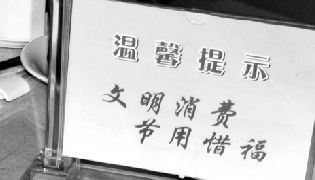 温馨提示
文明消费
节用惜福